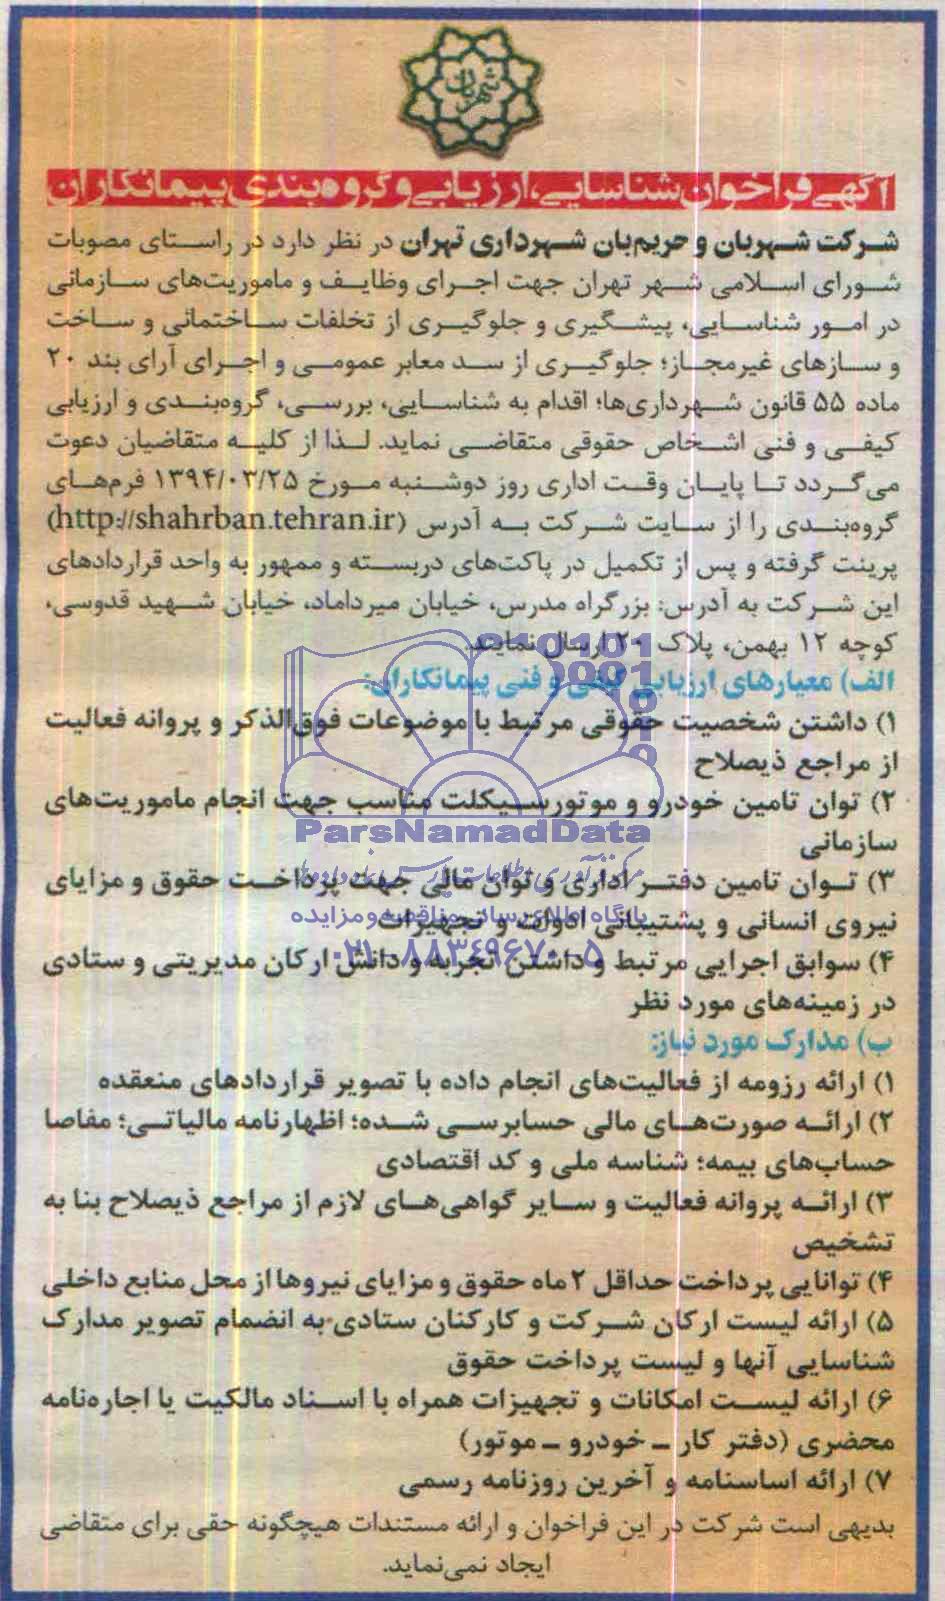 شهربان
آگهی فراخوان شناسایی، ارزیابی و گروه‌بندی پیمانکاران
شرکت شهربان و حریم‌بان شهرداری تهران در نظر دارد در راستای مصوبات
شورای اسلامی شهر تهران جهت اجرای وظایف و ماموریت‌های سازمانی
در امور شناسایی، پیشگیری و جلوگیری از تخلفات ساختمانی و ساخت
و سازهای غیرمجاز؛ جلوگیری از سد معابر عمومی و اجرای آرای بند ۲۰
ماده ۵۵ قانون شهرداری‌ها؛ اقدام به شناسایی، بررسی، گروه‌بندی و ارزیابی
کیفی و فنی اشخاص حقوقی متقاضی نماید. لذا از کلیه متقاضیان دعوت
می‌گردد تا پایان وقت اداری روز دوشنبه مورخ ۱۳۹۴/۰۳/۲۵ فرم‌های
گروه‌بندی را از سایت شرکت به آدرس (http://shahrban.tehran.ir)
پرینت گرفته و پس از تکمیل در پاکت‌های دربسته و ممهور به واحد قراردادهای
این شرکت به آدرس: بزرگراه مدرس، خیابان میرداماد، خیابان شهید قدوسی،
کوچه ۱۲ بهمن، پلاک ۲۰ ارسال نمایند.
الف) معیارهای ارزیابی کیفی و فنی پیمانکاران:
۱) داشتن شخصیت حقوقی مرتبط با موضوعات فوق‌الذکر و پروانه فعالیت
از مراجع ذیصلاح
۲) توان تامین خودرو و موتورسیکلت مناسب جهت انجام ماموریت‌های
سازمانی
۳) توان تامین دفتر اداری و توان مالی جهت پرداخت حقوق و مزایای
نیروی انسانی و پشتیبانی ادوات و تجهیزات
۴) سوابق اجرایی مرتبط و داشتن تجربه و دانش ارکان مدیریتی و ستادی
در زمینه‌های مورد نظر
ب) مدارک مورد نیاز:
۱) ارائه رزومه از فعالیت‌های انجام داده با تصویر قراردادهای منعقده
۲) ارائه صورت‌های مالی حسابرسی شده؛ اظهارنامه مالیاتی؛ مفاصا
حساب‌های بیمه؛ شناسه ملی و کد اقتصادی
۳) ارائه پروانه فعالیت و سایر گواهی‌های لازم از مراجع ذیصلاح بنا به
تشخیص
۴) توانایی پرداخت حداقل ۲ ماه حقوق و مزایای نیروها از محل منابع داخلی
۵) ارائه لیست ارکان شرکت و کارکنان ستادی به انضمام تصویر مدارک
شناسایی آنها و لیست پرداخت حقوق
۶) ارائه لیست امکانات و تجهیزات همراه با اسناد مالکیت یا اجاره‌نامه
محضری (دفتر کار – خودرو – موتور)
۷) ارائه اساسنامه و آخرین روزنامه رسمی
بدیهی است شرکت در این فراخوان و ارائه مستندات هیچگونه حقی برای متقاضی
ایجاد نمی‌نماید.
ParsNamadData
مرکز فرآوری اطلاعات پارس نماد داده‌ها
پایگاه اطلاع رسانی مناقصه و مزایده
۰۲۱-۸۸۳۴۹۶۷۰-۵